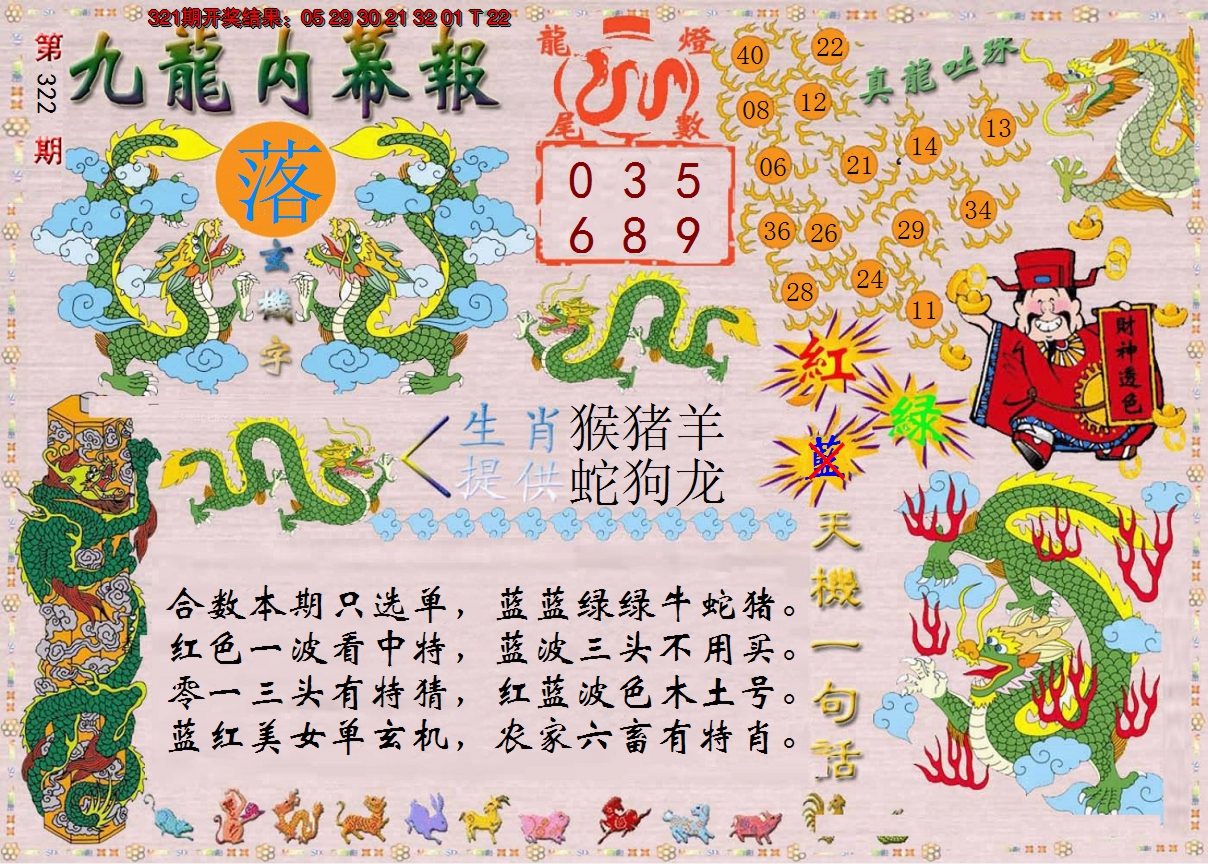 321期开奖结果：05 29 30 21 32 01 T 22
第322期
九龍内幕報
落
玄機字
龍燈
尾數
0 3 5
6 8 9
真龍吐珠
40 22
08 12
06 21 14 13
36 26 29 34
28 24 11
財神透色
紅
绿
藍
生肖提供
猴猪羊
蛇狗龙
天機一句話
合数本期只选单，蓝蓝绿绿牛蛇猪。
红色一波看中特，蓝波三头不用买。
零一三头有特猜，红蓝波色木土号。
蓝红美女单玄机，农家六畜有特肖。